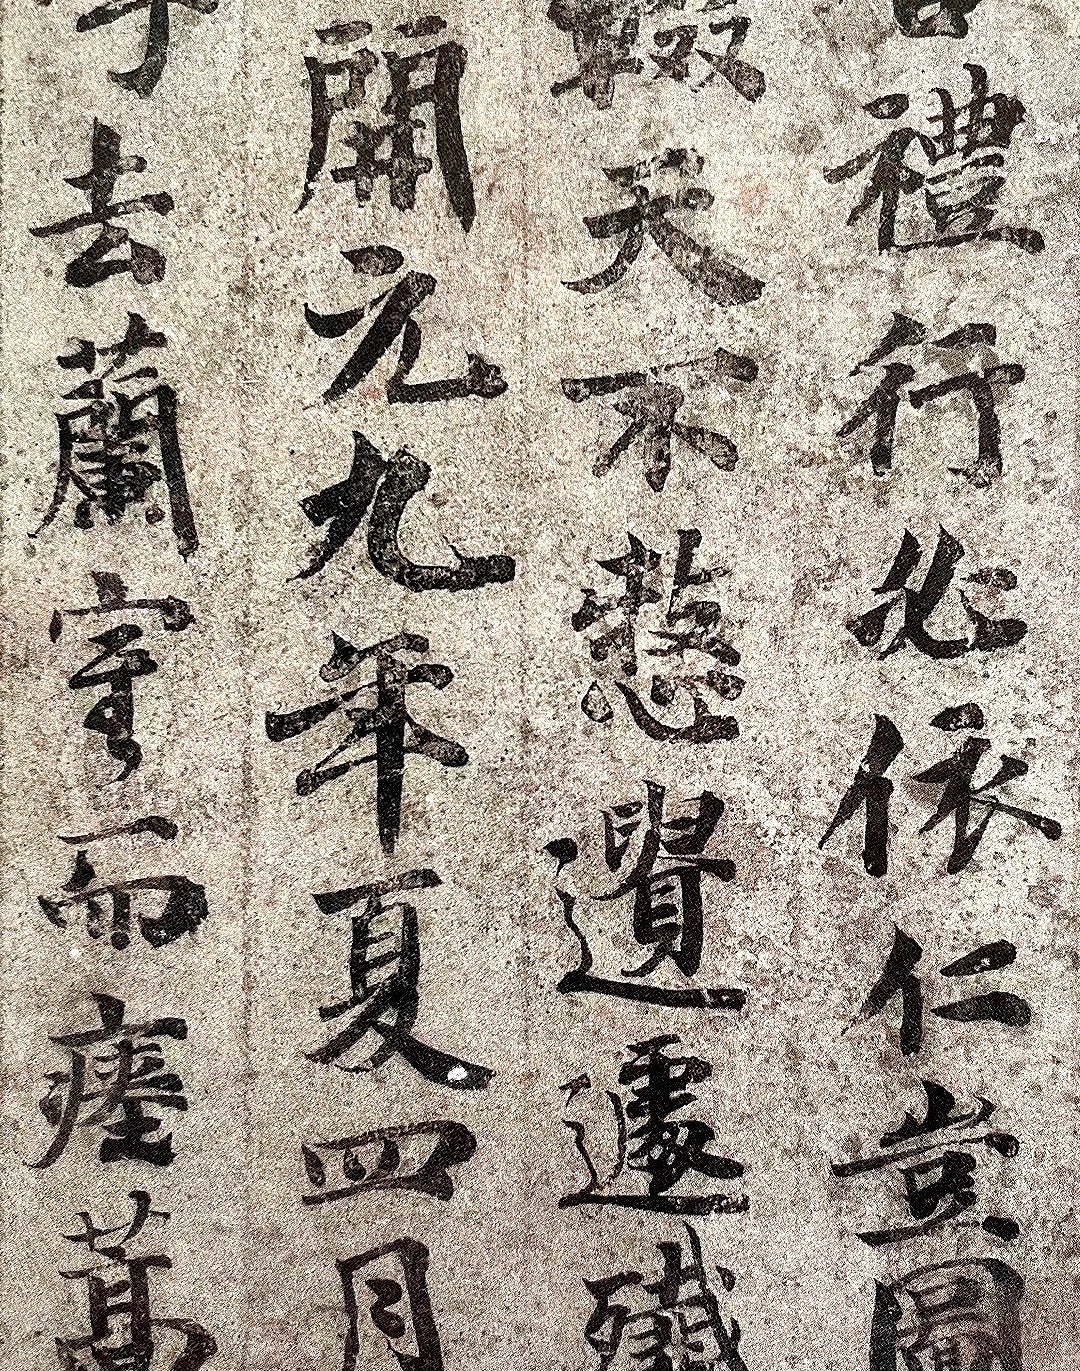 禮行必依仁豈圖
天不憖遺遽殲
開元九年夏四月
去蘭室而瘞蒿